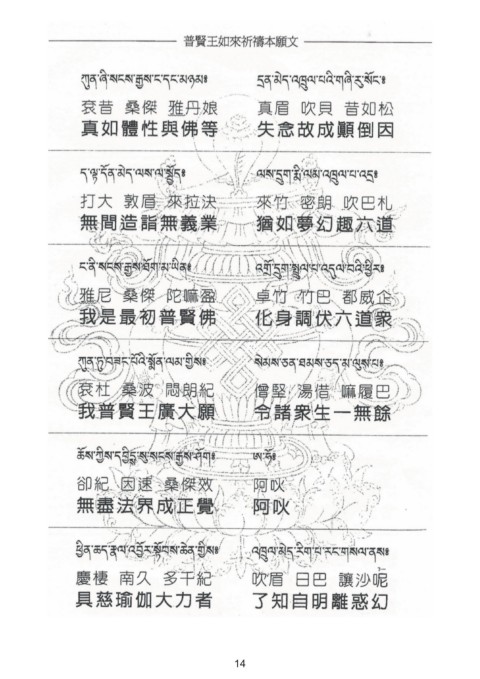 普賢王如來祈禱本願文
ཀུན་ཞི་སངས་རྒྱས་ང་དང་མཉམ༔
袞昔 桑傑 雅丹娘
真如體性與佛等
དྲན་མེད་འཁྲུལ་པའི་གཞི་རུ་སོང༔
真眉 吹貝 昔如松
失念故成顚倒因
ད་ལྟ་དོན་མེད་ལས་ལ་སྤྱོད༔
打大 敦眉 來拉決
無間造詣無義業
ལས་དྲུག་རྨི་ལམ་འཁྲུལ་པ་འདྲ༔
來竹 密朗 吹巴札
猶如夢幻趣六道
ང་ནི་སངས་རྒྱས་ཐོག་མ་ཡིན༔
雅尼 桑傑 陀嘛盈
我是最初普賢佛
འགྲོ་དྲུག་སྤྲུལ་པ་འདུལ་བའི་ཕྱིར༔
卓竹 竹巴 都威企
化身調伏六道衆
ཀུན་ཏུ་བཟང་པོའི་སྨོན་ལམ་གྱིས༔
袞杜 桑波 悶朗紀
我普賢王廣大願
སེམས་ཅན་ཐམས་ཅད་མ་ལུས་པ༔
僧堅 湯借 嘛履巴
令諸衆生一無餘
ཆོས་ཀྱིས་དབྱིངྶུ་སངས་རྒྱས་ཤོག༔
卻紀 因速 桑傑效
無盡法界成正覺
ཨ་ཧོ༔
阿吙
阿吙
ཕྱིན་ཆད་རྣལ་འབྱོར་སྟོབས་ཆེན་གྱིས༔
慶棲 南久 多千紀
具慈瑜伽大力者
འཁྲུལ་མེད་རིག་པ་རང་གསལ་ནས༔
吹眉 日巴 讓沙呢
了知自明離惑幻
14